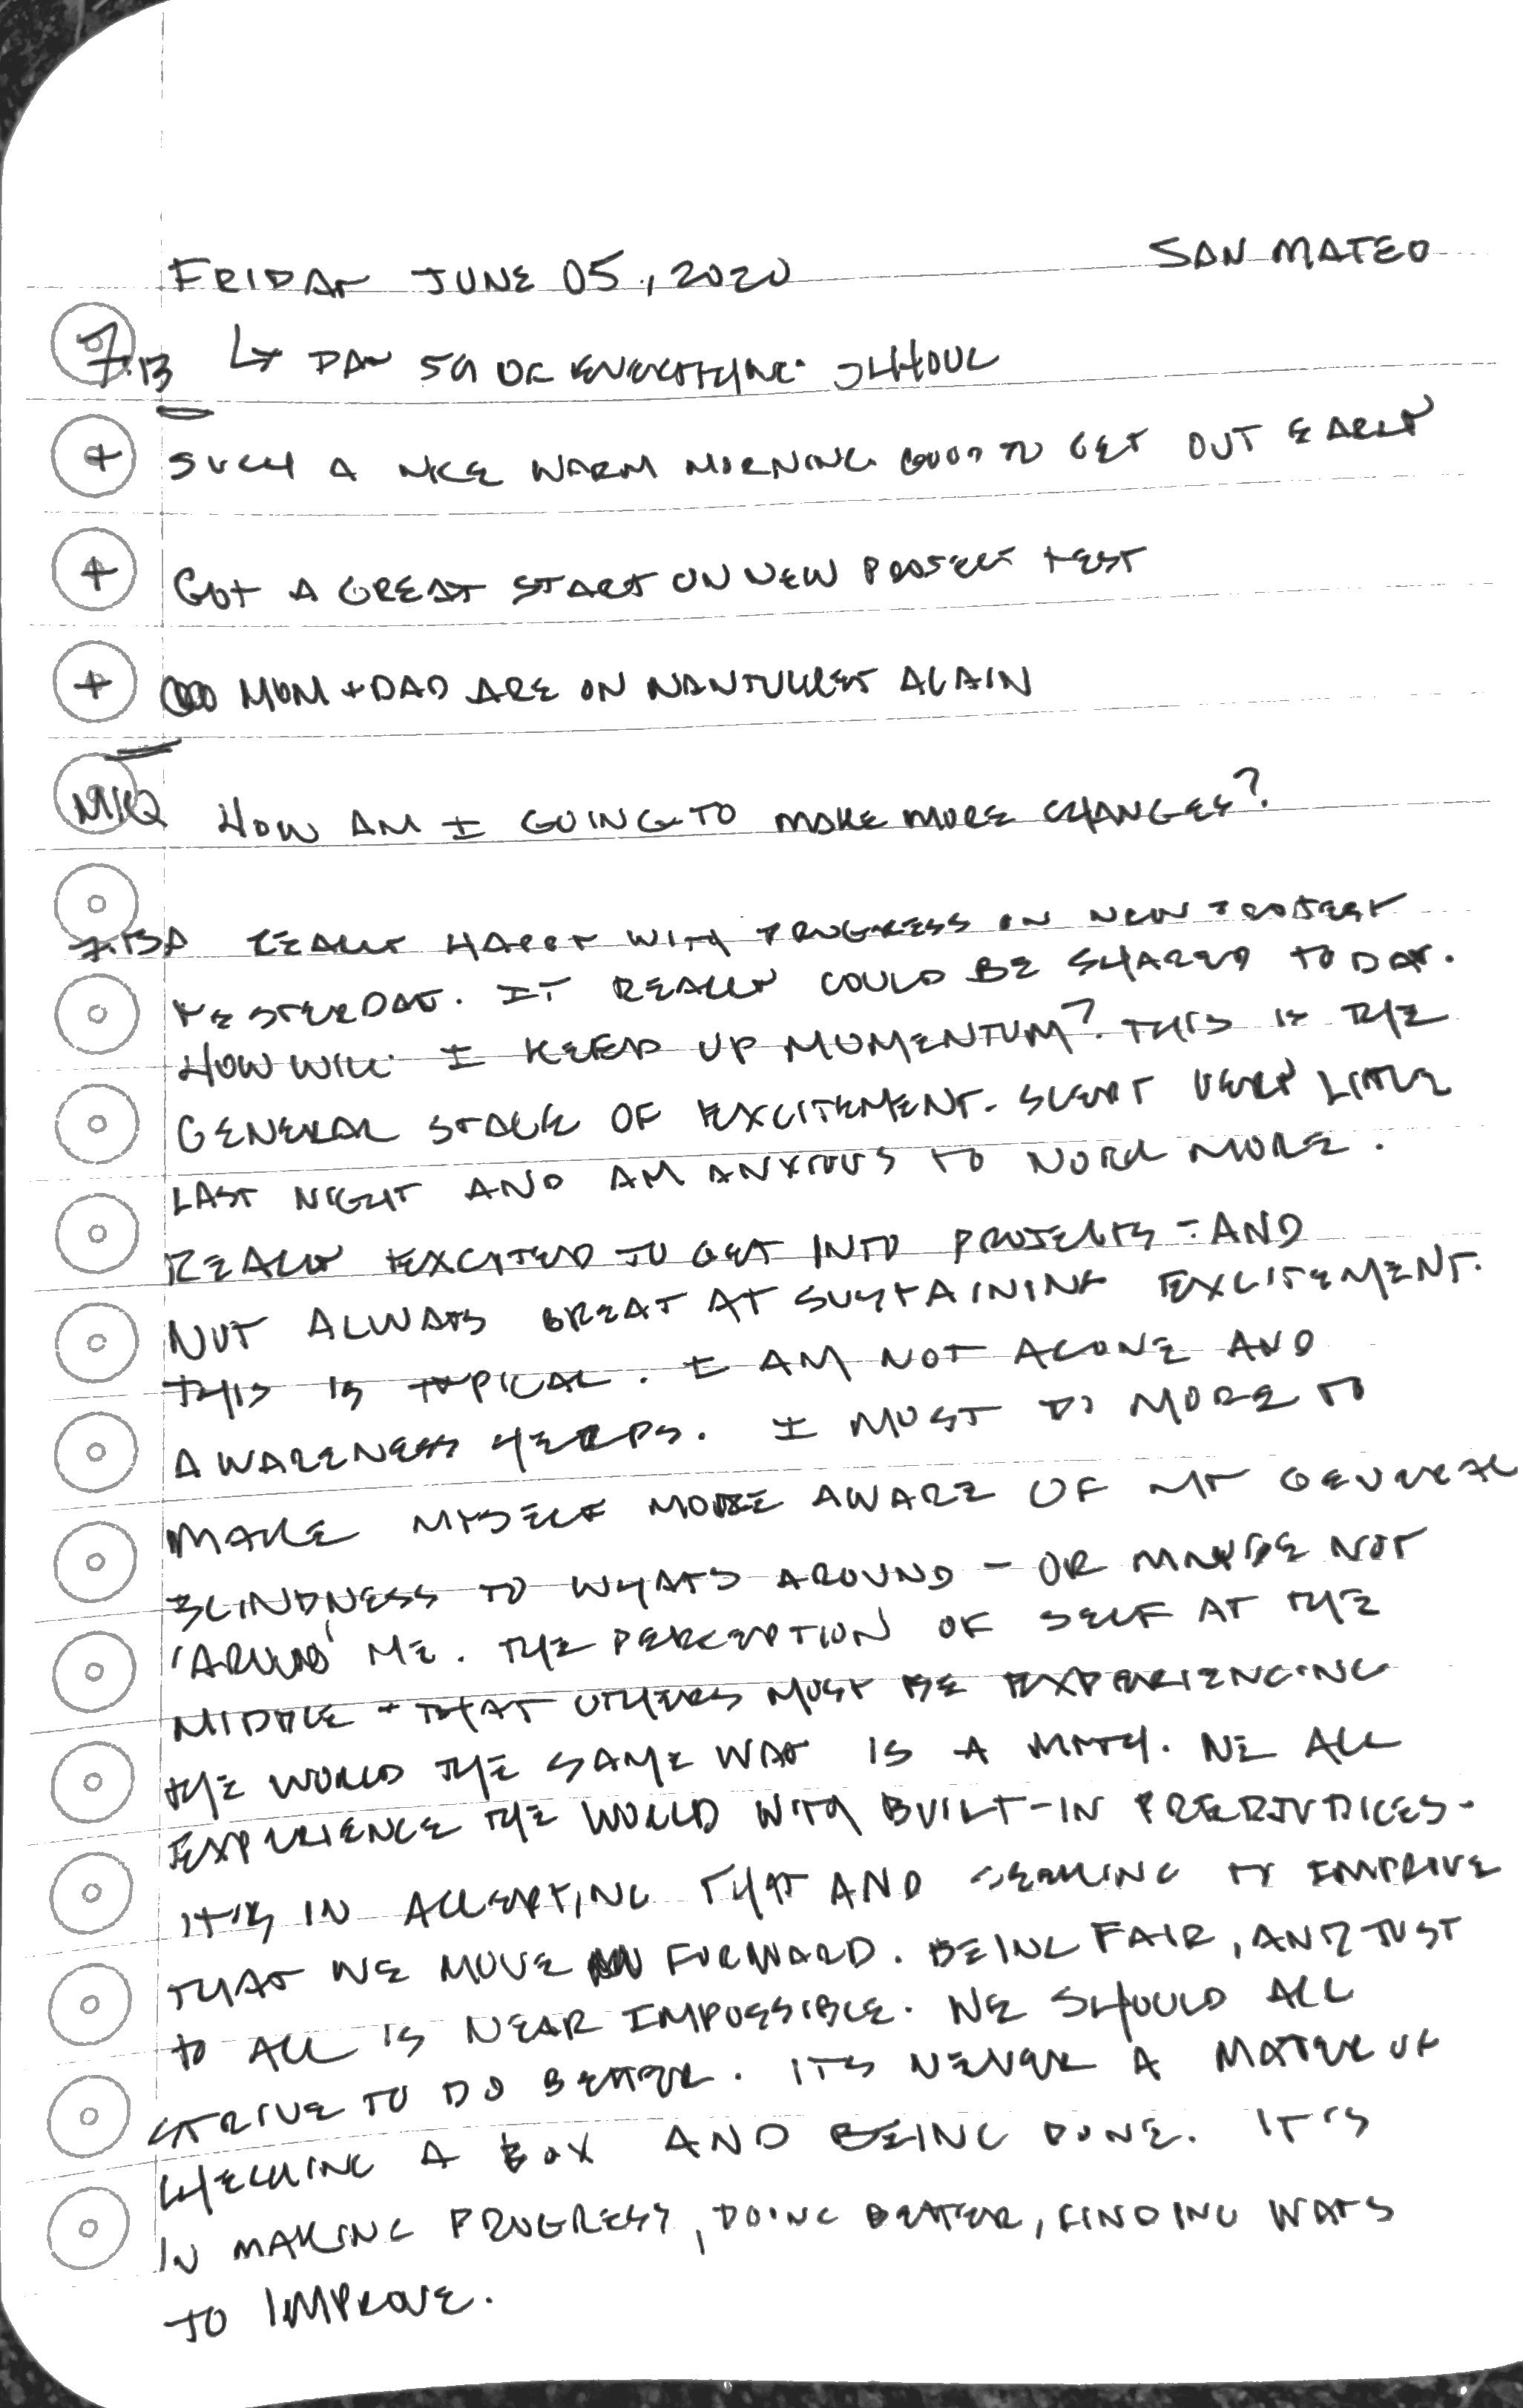 FRIDAY JUNE 05, 2020 SAN MATEO
7.13 ↳ DAY 59 OF EVERYTHING
+ SUCH A NICE WARM MORNING. GOOD TO GET OUT EARLY
+ GOT A GREAT START ON NEW PROJECT TEST
+ MOM + DAD ARE ON NANTUCKET AGAIN
MIQ HOW AM I GOING TO MAKE MORE CHANGES?
7.13A REALLY HAPPY WITH PROGRESS ON NEW PROJECT
YESTERDAY. IT REALLY COULD BE SHARED TODAY.
HOW WILL I KEEP UP MOMENTUM? THIS IS THE
GENERAL OF EXCITEMENT. SLEPT VERY LITTLE
LAST NIGHT AND AM ANXIOUS TO WORK MORE.
REALLY EXCITED TO GET INTO PROJECTS - AND
NOT ALWAYS GREAT AT SUSTAINING EXCITEMENT.
THIS IS TYPICAL. I AM NOT ALONE AND
AWARENESS HELPS. I MUST DO MORE TO
MAKE MYSELF MORE AWARE OF MY GENERAL
BLINDNESS TO WHATS AROUND - OR MAYBE NOT
'AROUND' ME. THE PERCEPTION OF SELF AT THE
MIDDLE + THAT OTHERS MUST BE EXPERIENCING
THE WORLD THE SAME WAY IS A MYTH. WE ALL
EXPERIENCE THE WORLD WITH BUILT-IN PREDJUDICES -
IT'S IN ACCEPTING THAT AND SEEKING TO IMPROVE
THAT WE MOVE FORWARD. BEING FAIR, AND JUST
TO ALL IS NEAR IMPOSSIBLE. WE SHOULD ALL
STRIVE TO DO BETTER. ITS NEVER A MATTER OF
CHECKING A BOX AND BEING DONE. IT'S
IN MAKING PROGRESS, DOING BETTER, FINDING WAYS
TO IMPROVE.